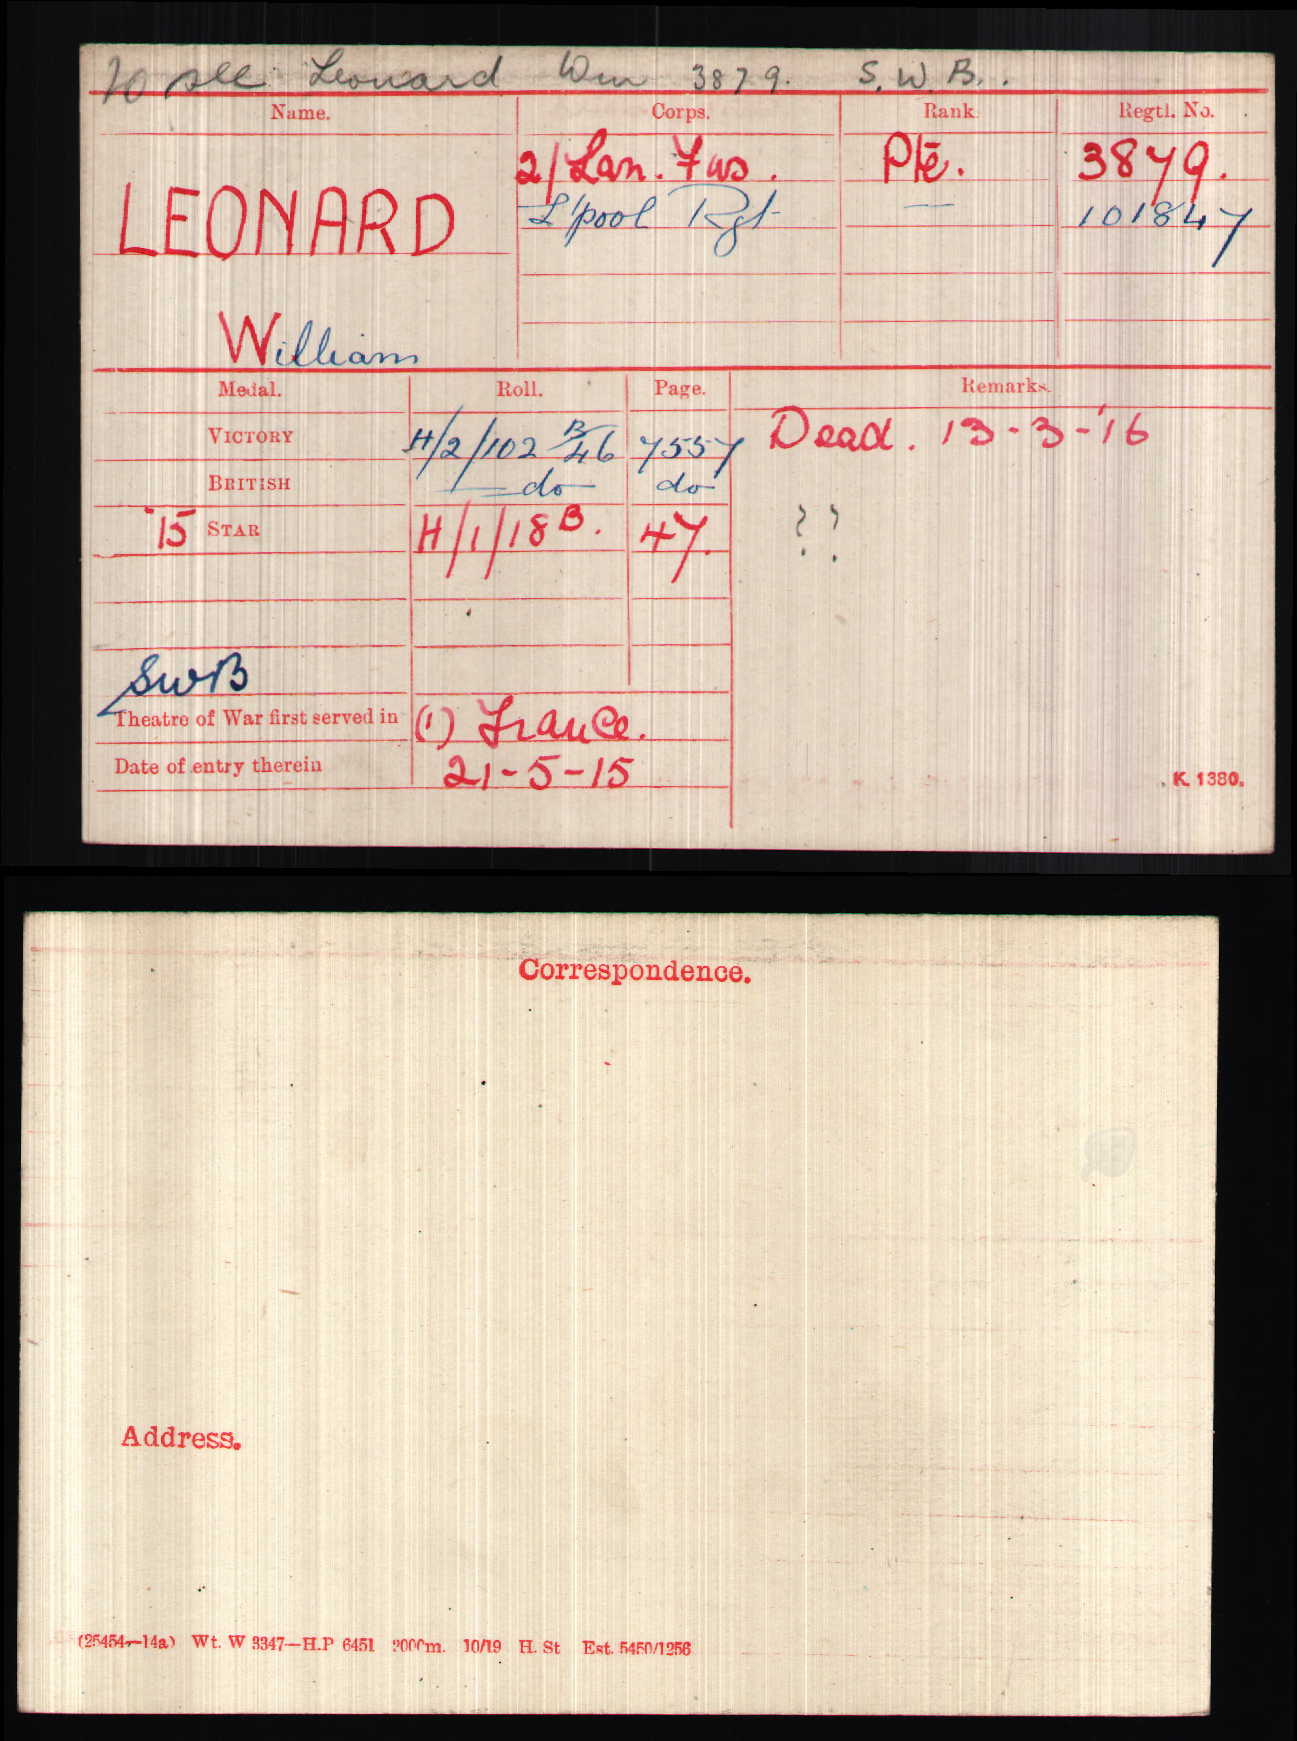 To see Leonard Wm 3879. S.W.B.
Name. Corps. Rank. Regtl. No.
2/Lan. Fus. Pte. 3879.
LEONARD L'pool Rgt — 101847
William
Medal. Roll. Page. Remarks.
VICTORY H/2/102 B/46 7557 Dead. 13-3-'16
BRITISH —do— do
'15 STAR H/1/18 B. 47. ? ?
SWB
Theatre of War first served in (1) France.
Date of entry therein 21-5-15
K. 1380.
Correspondence.
Address.
(25454—14a) Wt. W 3347—H.P 6451 2000m. 10/19 H. St Est. 5450/1256